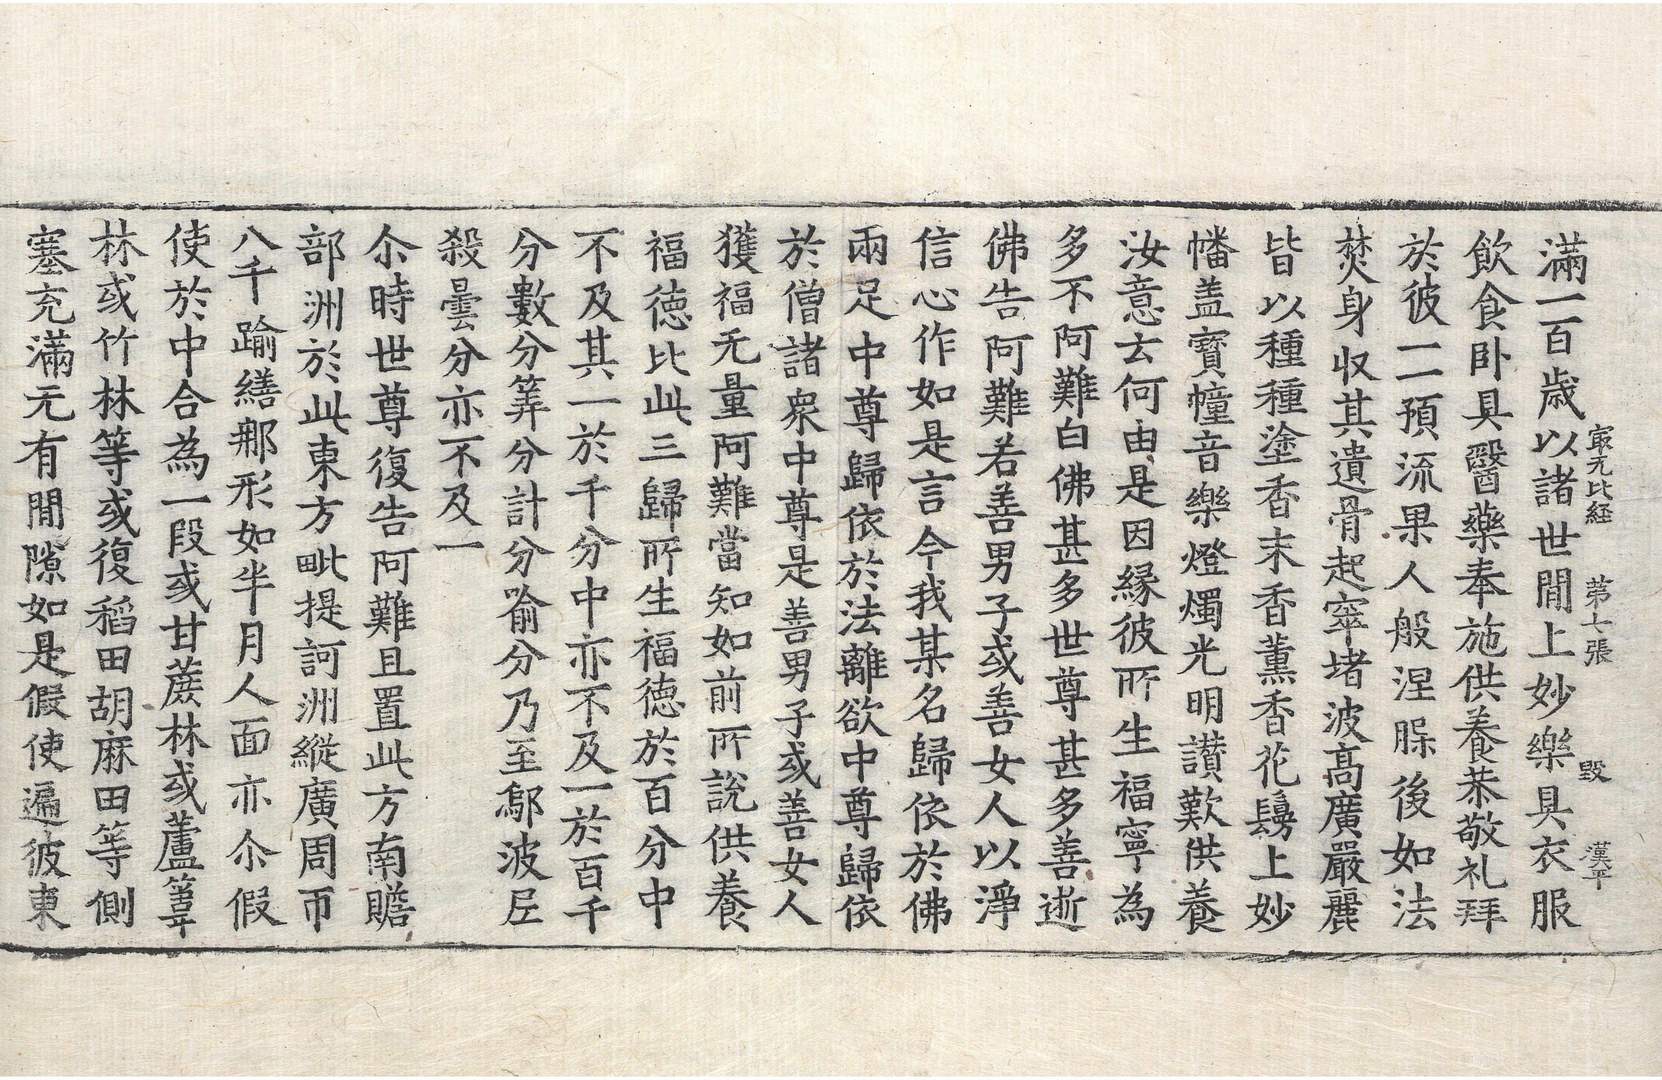 冣无比経 第七張 毀 漢平
滿一百歳以諸世閒上妙樂具衣服
飲食卧具醫藥奉施供養恭敬礼拜
於彼一一預流果人般涅槃後如法
焚身収其遺骨起窣堵波高廣嚴麗
皆以種種塗香末香薰香花鬘上妙
幡盖寶幢音樂燈燭光明讃歎供養
汝意云何由是因緣彼所生福寧為
多不阿難白佛甚多世尊甚多善逝
佛告阿難若善男子或善女人以淨
信心作如是言今我某名歸依於佛
兩足中尊歸依於法離欲中尊歸依
於僧諸衆中尊是善男子或善女人
獲福无量阿難當知如前所說供養
福德比此三歸所生福德於百分中
不及其一於千分中亦不及一於百千
分數分筭分計分喻分乃至鄔波尼
殺曇分亦不及一
尒時世尊復告阿難且置此方南贍
部洲於此東方毗提訶洲縱廣周帀
八千踰繕那形如半月人面亦尒假
使於中合為一段或甘蔗林或蘆葦
林或竹林等或復稻田胡麻田等側
塞充滿无有閒隙如是假使遍彼東